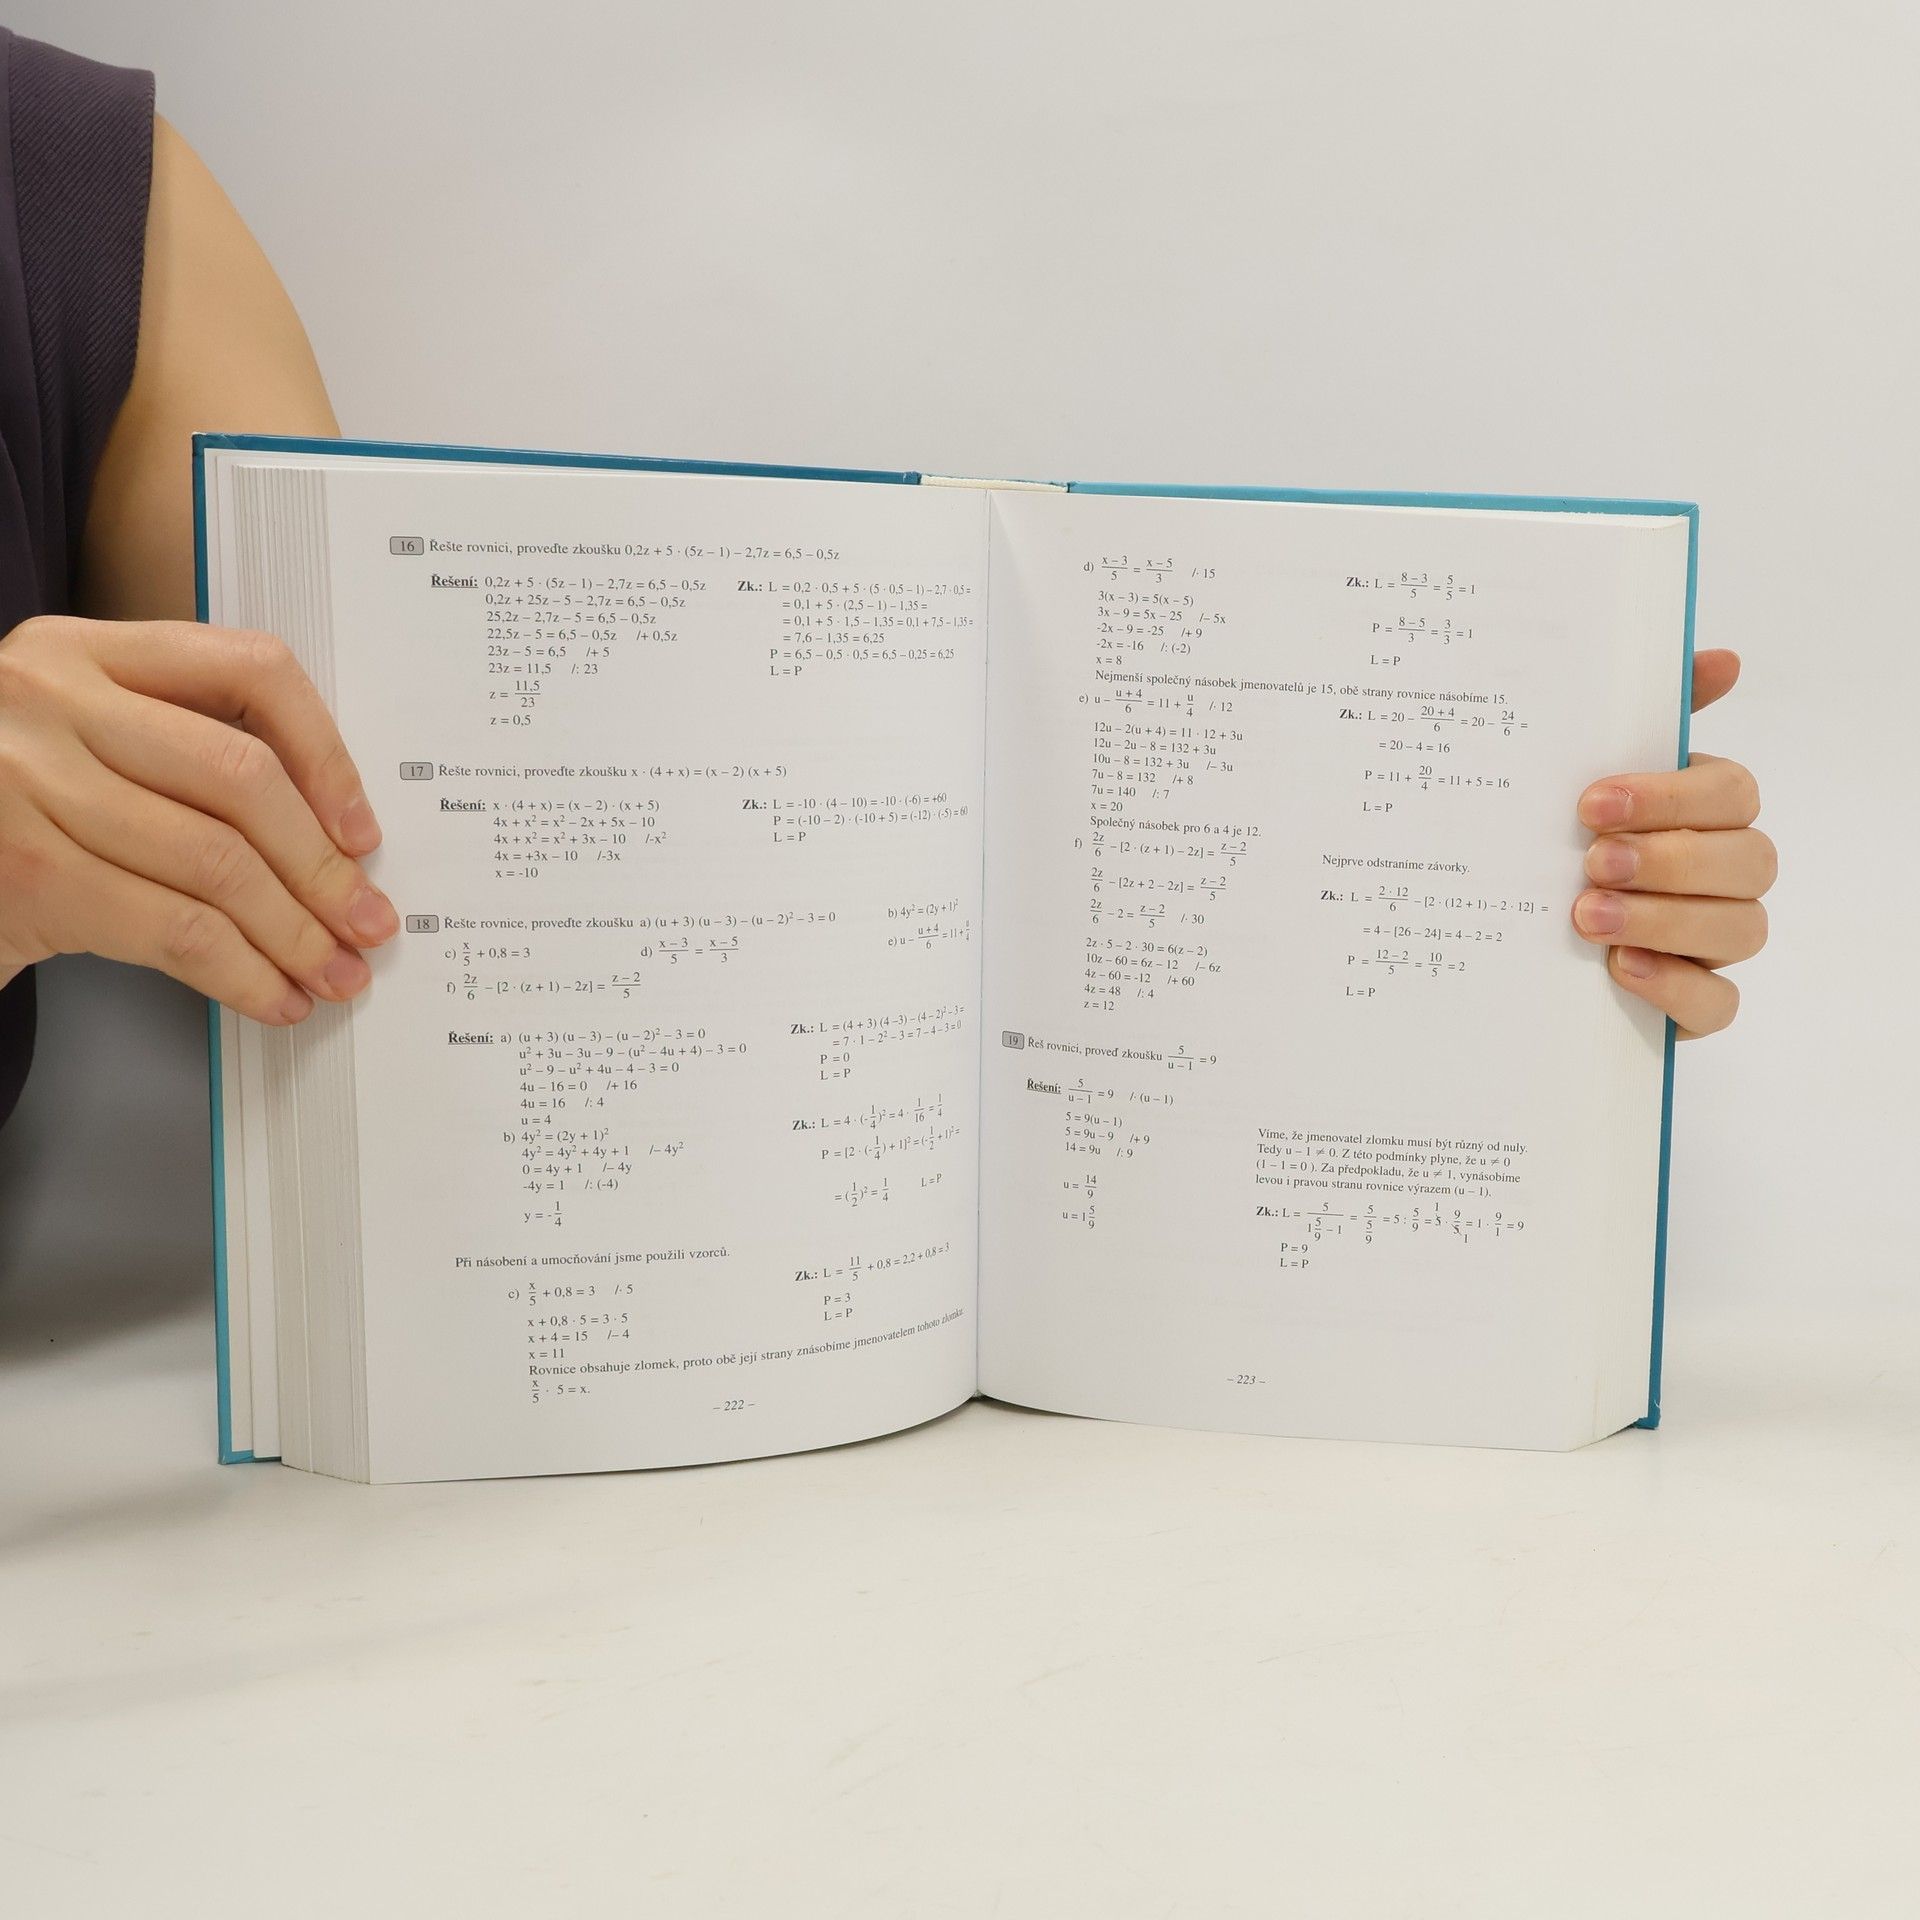 16 Řešte rovnici, proveďte zkoušku 0,2z + 5 · (5z – 1) – 2,7z = 6,5 – 0,5z
Řešení: 0,2z + 5 · (5z – 1) – 2,7z = 6,5 – 0,5z
0,2z + 25z – 5 – 2,7z = 6,5 – 0,5z
25,2z – 2,7z – 5 = 6,5 – 0,5z
22,5z – 5 = 6,5 – 0,5z /+ 0,5z
23z – 5 = 6,5 /+ 5
23z = 11,5 /: 23
z = 11,5/23
z = 0,5
Zk.: L = 0,2 · 0,5 + 5 · (5 · 0,5 – 1) – 2,7 · 0,5 =
= 0,1 + 5 · (2,5 – 1) – 1,35 =
= 0,1 + 5 · 1,5 – 1,35 = 0,1 + 7,5 – 1,35 =
= 7,6 – 1,35 = 6,25
P = 6,5 – 0,5 · 0,5 = 6,5 – 0,25 = 6,25
L = P
17 Řešte rovnici, proveďte zkoušku x · (4 + x) = (x – 2) (x + 5)
Řešení: x · (4 + x) = (x – 2) · (x + 5)
4x + x² = x² – 2x + 5x – 10
4x + x² = x² + 3x – 10 /-x²
4x = +3x – 10 /-3x
x = -10
Zk.: L = -10 · (4 – 10) = -10 · (-6) = +60
P = (-10 – 2) · (-10 + 5) = (-12) · (-5) = 60
L = P
18 Řešte rovnice, proveďte zkoušku a) (u + 3) (u – 3) – (u – 2)² – 3 = 0 b) 4y² = (2y + 1)²
c) x/5 + 0,8 = 3 d) x – 3/5 = x – 5/3 e) u – u + 4/6 = 11 + u/4
f) 2z/6 – [2 · (z + 1) – 2z] = z – 2/5
Řešení: a) (u + 3) (u – 3) – (u – 2)² – 3 = 0
u² + 3u – 3u – 9 – (u² – 4u + 4) – 3 = 0
u² – 9 – u² + 4u – 4 – 3 = 0
4u – 16 = 0 /+ 16
4u = 16 /: 4
u = 4
Zk.: L = (4 + 3) (4 – 3) – (4 – 2)² – 3 =
= 7 · 1 – 2² – 3 = 7 – 4 – 3 = 0
P = 0
L = P
b) 4y² = (2y + 1)²
4y² = 4y² + 4y + 1 /– 4y²
0 = 4y + 1 /– 4y
-4y = 1 /: (-4)
y = - 1/4
Zk.: L = 4 · (- 1/4)² = 4 · 1/16 = 1/4
P = [2 · (- 1/4) + 1]² = (- 1/2 + 1)² =
= (1/2)² = 1/4 L = P
Při násobení a umocňování jsme použili vzorců.
c) x/5 + 0,8 = 3 /· 5
x + 0,8 · 5 = 3 · 5
x + 4 = 15 /– 4
x = 11
Zk.: L = 11/5 + 0,8 = 2,2 + 0,8 = 3
P = 3
L = P
Rovnice obsahuje zlomek, proto obě její strany znásobíme jmenovatelem tohoto zlomku:
x/5 · 5 = x.
– 222 –
d) x – 3/5 = x – 5/3 /· 15
3(x – 3) = 5(x – 5)
3x – 9 = 5x – 25 /– 5x
-2x – 9 = -25 /+ 9
-2x = -16 /: (-2)
x = 8
Zk.: L = 8 – 3/5 = 5/5 = 1
P = 8 – 5/3 = 3/3 = 1
L = P
Nejmenší společný násobek jmenovatelů je 15, obě strany rovnice násobíme 15.
e) u – u + 4/6 = 11 + u/4 /· 12
12u – 2(u + 4) = 11 · 12 + 3u
12u – 2u – 8 = 132 + 3u
10u – 8 = 132 + 3u /– 3u
7u – 8 = 132 /+ 8
7u = 140 /: 7
x = 20
Zk.: L = 20 – 20 + 4/6 = 20 – 24/6 =
= 20 – 4 = 16
P = 11 + 20/4 = 11 + 5 = 16
L = P
Společný násobek pro 6 a 4 je 12.
f) 2z/6 – [2 · (z + 1) – 2z] = z – 2/5
2z/6 – [2z + 2 – 2z] = z – 2/5
2z/6 – 2 = z – 2/5 /· 30
2z · 5 – 2 · 30 = 6(z – 2)
10z – 60 = 6z – 12 /– 6z
4z – 60 = -12 /+ 60
4z = 48 /: 4
z = 12
Nejprve odstraníme závorky.
Zk.: L = 2 · 12/6 – [2 · (12 + 1) – 2 · 12] =
= 4 – [26 – 24] = 4 – 2 = 2
P = 12 – 2/5 = 10/5 = 2
L = P
19 Řeš rovnici, proveď zkoušku 5/u – 1 = 9
Řešení: 5/u – 1 = 9 /· (u – 1)
5 = 9(u – 1)
5 = 9u – 9 /+ 9
14 = 9u /: 9
u = 14/9
u = 1 5/9
Víme, že jmenovatel zlomku musí být různý od nuly.
Tedy u – 1 ≠ 0. Z této podmínky plyne, že u ≠ 0
(1 – 1 = 0 ). Za předpokladu, že u ≠ 1, vynásobíme
levou i pravou stranu rovnice výrazem (u – 1).
Zk.: L = 5/1 5/9 – 1 = 5/5/9 = 5 : 5/9 = 5 · 9/5 = 1 · 9/1 = 9
P = 9
L = P
– 223 –